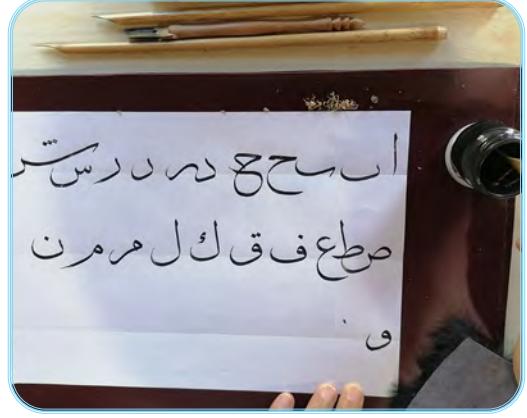 ا ٮ ح ح د ر د ر ر س ش
ص ط ع ف ق ك ل م م ن
و